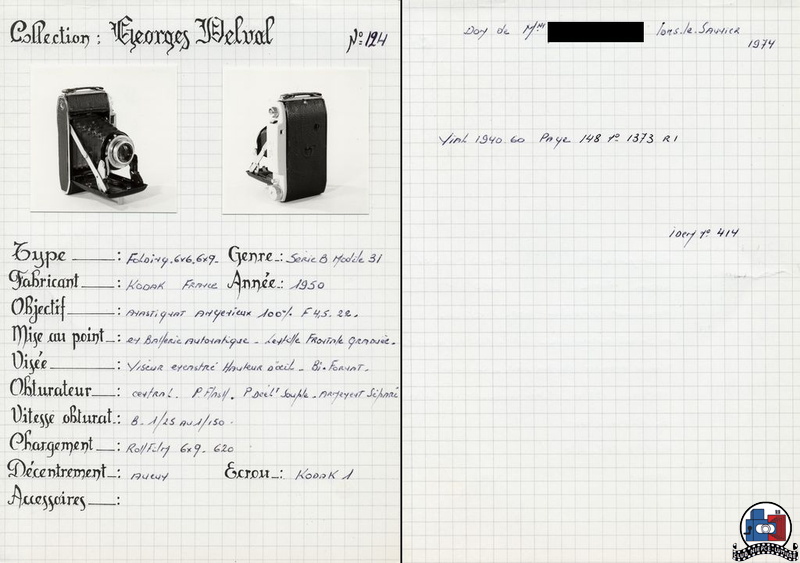 Collection : Georges Delval
N° 124
Type : Folding. 6x6. 6x9. Genre : Série B Modèle 31
Fabricant : KODAK France Année : 1950
Objectif : Anastigmat Angenieux 100% F 4,5. 22.
Mise au point : en Batterie Automatique - Lentille Frontale Graduée.
Visée : Viseur excentré Hauteur d'œil - Bi-Format.
Obturateur : central. P. Flash. P. Décl^t Souple - Armement Séparé
Vitesse obturat. : B - 1/25 au 1/150.
Chargement : RollFilm 6x9 - 620
Décentrement : Aucun Ecrou : KODAK 1
Accessoires :
Don de M^me Lons-le-Saunier
1974
Vial 1940.60 Page 148 n° 1373 R1
idem n° 414